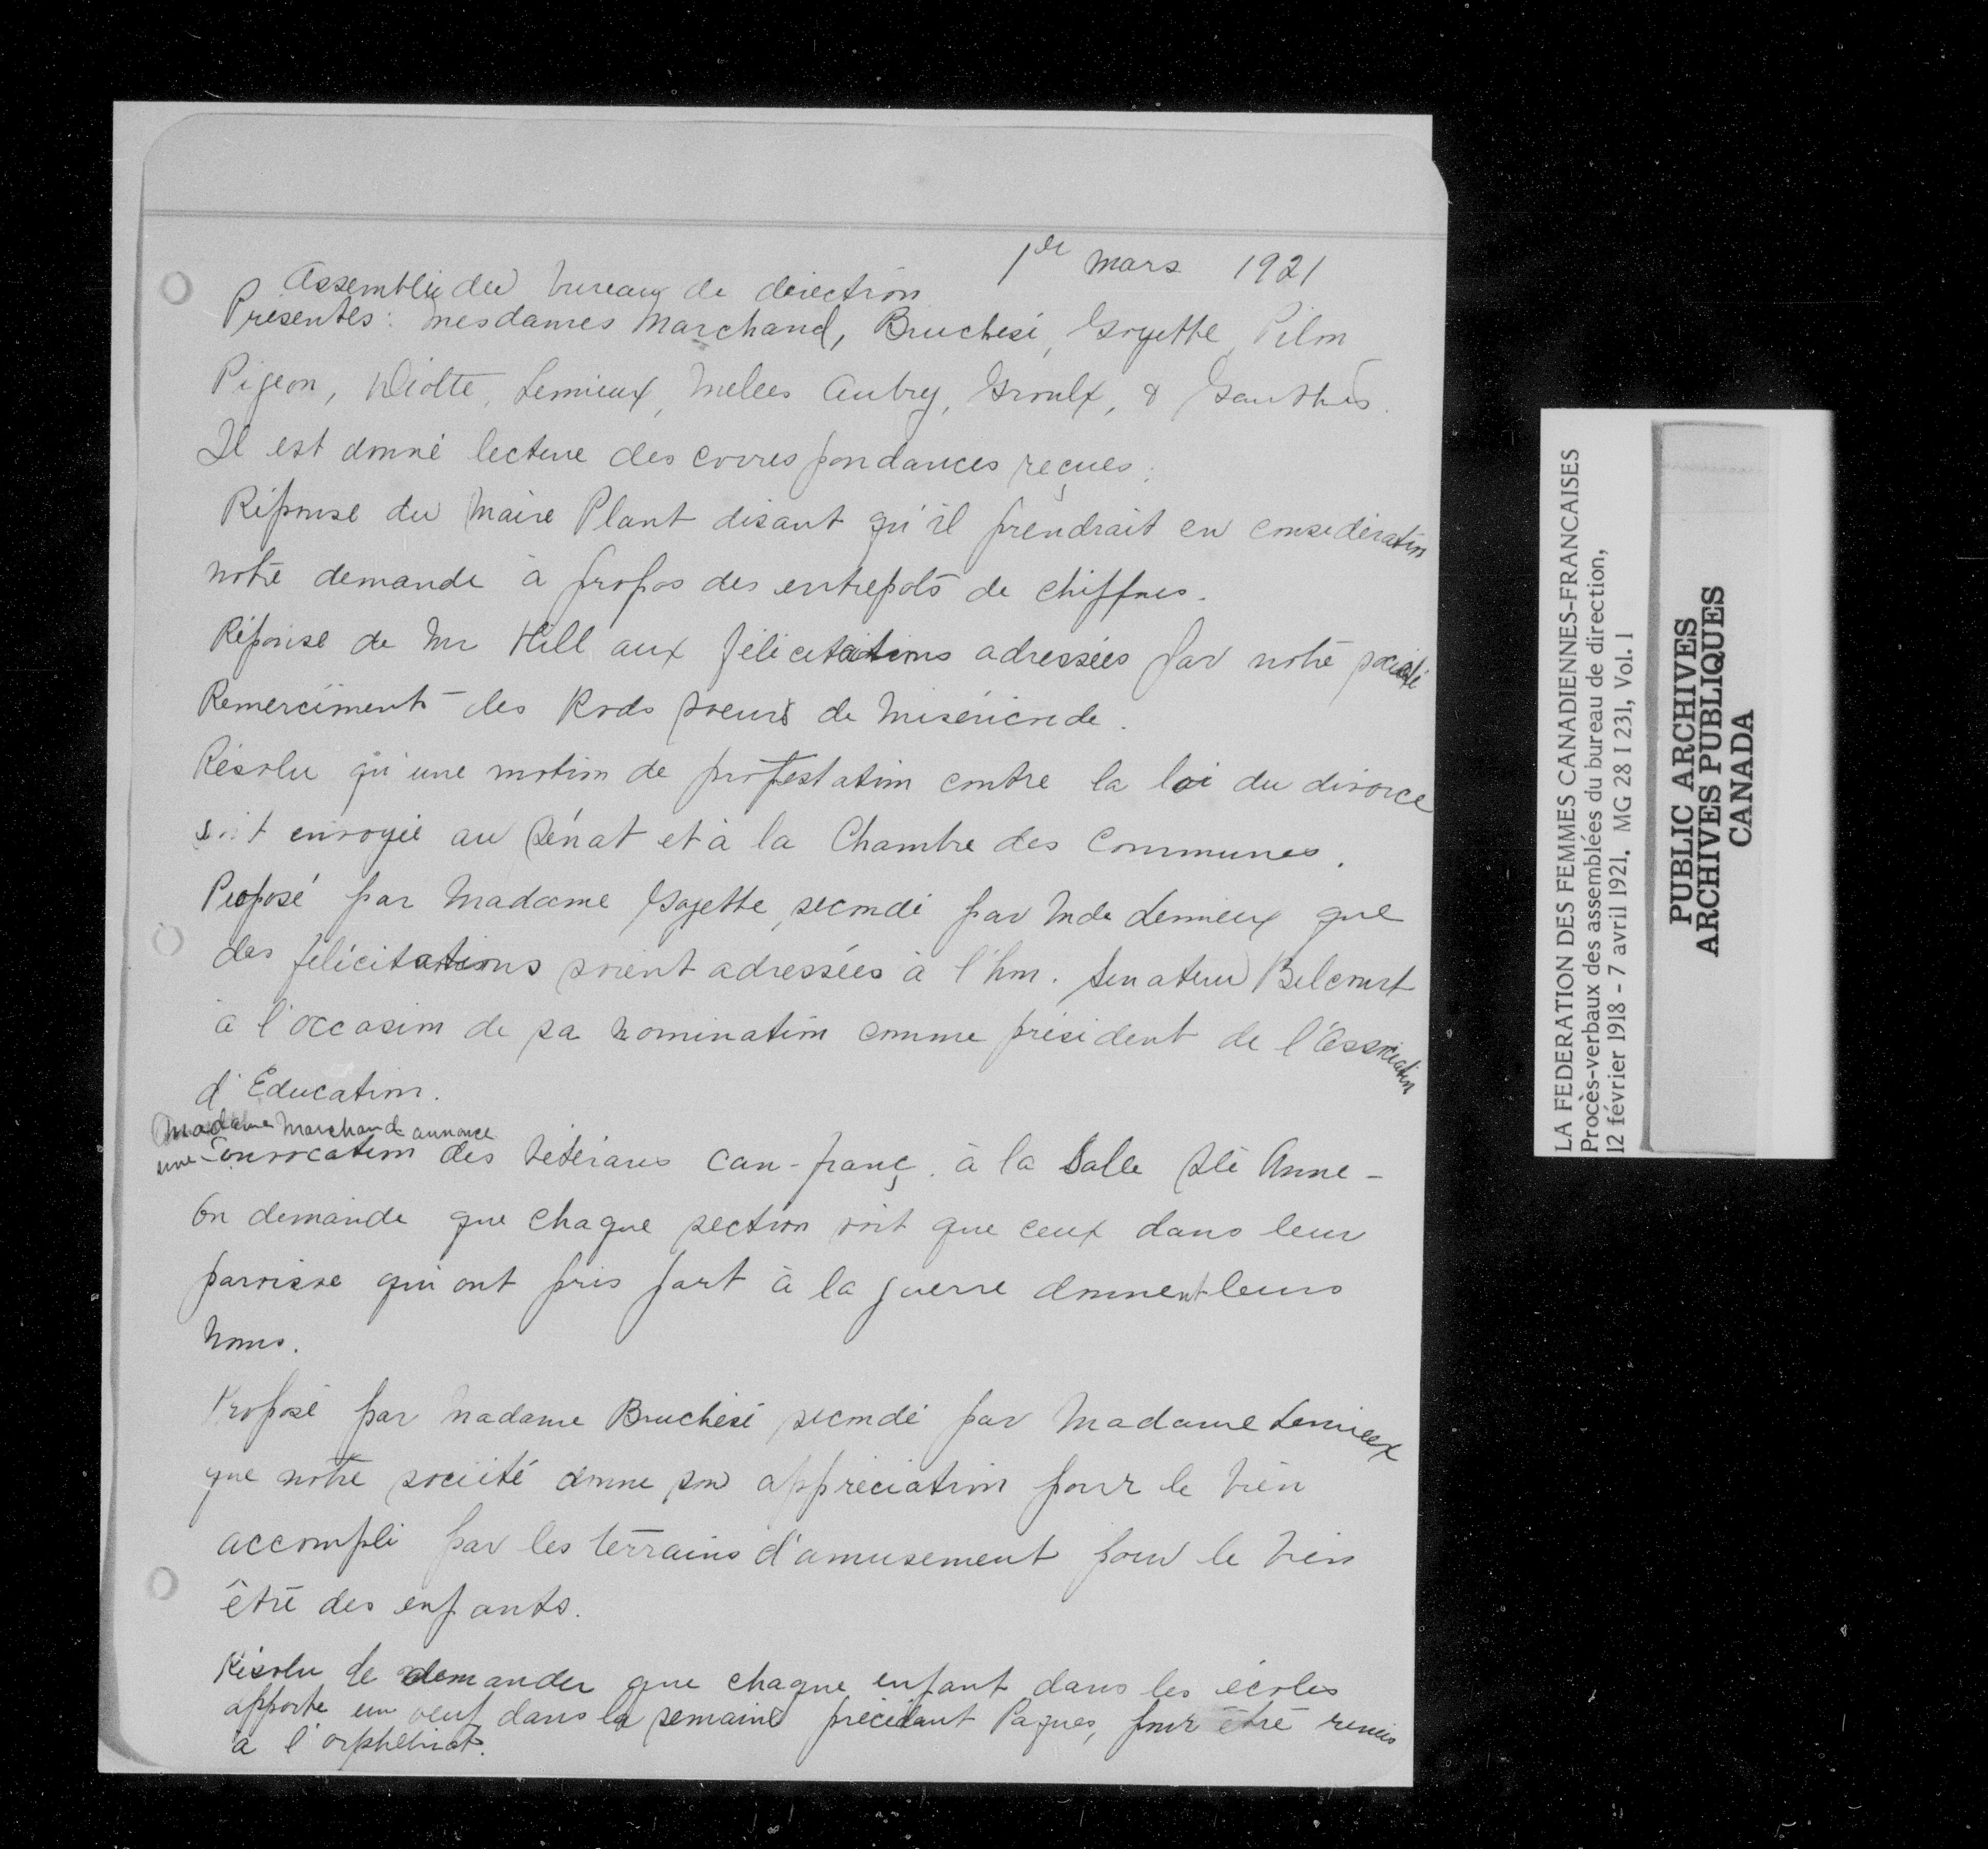 1er mars 1921
Assemblée du bureau de direction
Présentes: Mesdames Marchand, Bruchési, Goyette, Pilon
Pigeon, Diotte, Lemieux, Melles Aubry, Groulx, & Gauthier.
Il est donné lecture des correspondances reçues:
Réponse du Maire Plant disant qu'il prendrait en considération
notre demande à propos des entrepots de chiffons.
Réponse de Mr Hill aux félicitations adressées par notre société
Remerciments des Rvds soeurs de Miséricorde.
Résolu qu'une motion de protestation contre la loi du divorce
soit envoyée au Sénat et à la Chambre des Communes.
Proposé par Madame Goyette, secondé par Mde Lemieux que
des félicitations soient adressées à l'hon. Senateur Belcourt
à l'occasion de sa nomination comme président de l'Association
d'Education.
Madame Marchand annonce
une Convocation des Vétérans can-franç. à la Salle Ste Anne -
On demande que chaque section voit que ceux dans leur
paroisse qui ont pris part à la guerre donnent leurs
noms.
Proposé par Madame Bruchési secondé par Madame Lemieux
que notre société donne son appréciation pour le bien
accompli par les terrains d'amusement pour le bien
être des enfants.
Résolu de demander que chaque enfant dans les écoles
apporte un oeuf dans la semaine précédant Paques, pour être remis
à l'orphelinat.
LA FEDERATION DES FEMMES CANADIENNES-FRANCAISES
Procès-verbaux des assemblées du bureau de direction,
12 février 1918 - 7 avril 1921. MG 28 I 231, Vol. 1
PUBLIC ARCHIVES
ARCHIVES PUBLIQUES
CANADA